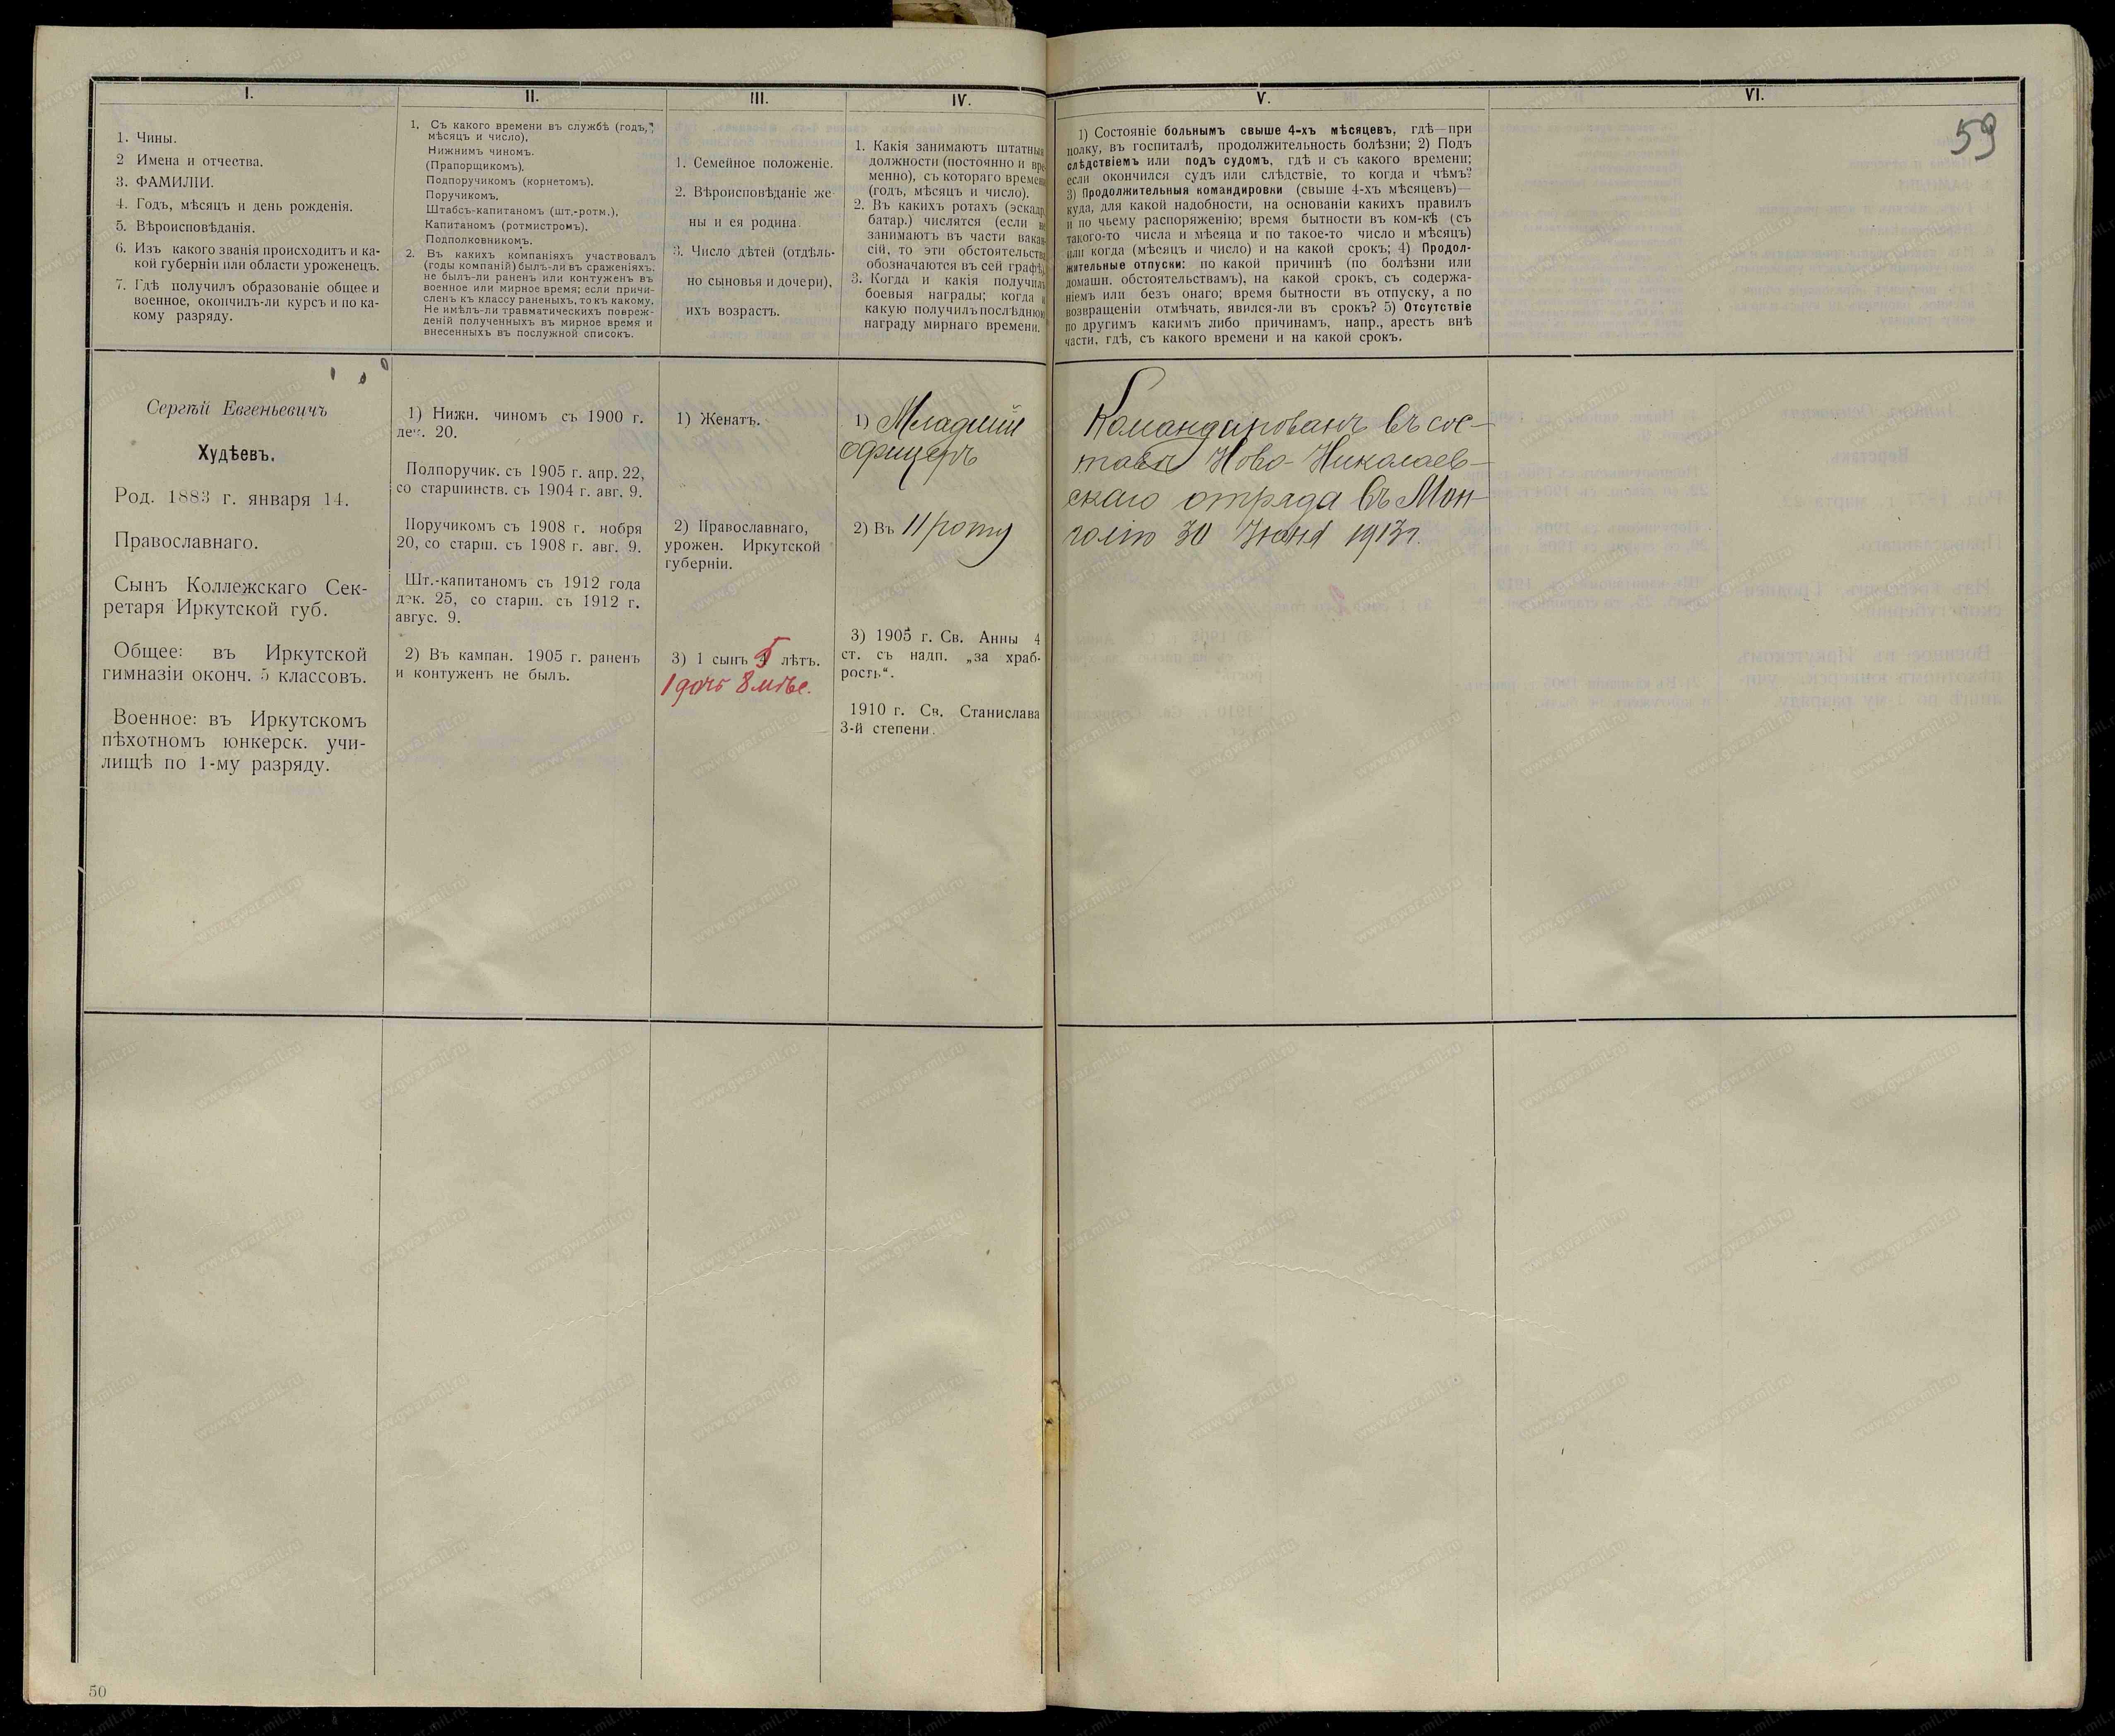 I.
1. Чины.
2 Имена и отчества.
3. ФАМИЛІИ.
4. Годъ, мѣсяцъ и день рожденія.
5. Вѣроисповѣданія.
6. Изъ какого званія происходитъ и ка-
кой губерніи или области уроженецъ.
7. Гдѣ получилъ образованіе общее и
военное, окончилъ-ли курсъ и по ка-
кому разряду.
II.
1. Съ какого времени въ службѣ (годъ,
мѣсяцъ и число).
Нижнимъ чиномъ.
(Прапорщикомъ).
Подпоручикомъ (корнетомъ).
Поручикомъ.
Штабсъ-капитаномъ (шт.-ротм.),
Капитаномъ (ротмистромъ).
Подполковникомъ.
2. Въ какихъ компаніяхъ участвовалъ
(годы компаній) былъ-ли въ сраженіяхъ.
не былъ-ли раненъ или контуженъ въ
военное или мирное время; если причи-
сленъ къ классу раненыхъ, то къ какому.
Не имѣлъ-ли травматическихъ повреж-
деній полученныхъ въ мирное время и
внесенныхъ въ послужной списокъ.
III.
1. Семейное положеніе.
2. Вѣроисповѣданіе же-
ны и ея родина.
3. Число дѣтей (отдѣль-
но сыновья и дочери),
ихъ возрастъ.
IV.
1. Какія занимаютъ штатныя
должности (постоянно и вре
менно), съ котораго времени
(годъ, мѣсяцъ и число).
2. Въ какихъ ротахъ (эскадр.
батар.) числятся (если не
занимаютъ въ части вакан
сій, то эти обстоятельства
обозначаются въ сей графѣ).
3. Когда и какія получилъ
боевыя награды; когда и
какую получилъ послѣднюю
награду мирнаго времени.
V.
1) Состояніе больнымъ свыше 4-хъ мѣсяцевъ, гдѣ—при
полку, въ госпиталѣ, продолжительность болѣзни; 2) Подъ
слѣдствіемъ или подъ судомъ, гдѣ и съ какого времени;
если окончился судъ или слѣдствіе, то когда и чѣмъ?
3) Продолжительныя командировки (свыше 4-хъ мѣсяцевъ)—
куда, для какой надобности, на основаніи какихъ правилъ
и по чьему распоряженію; время бытности въ ком-кѣ (съ
такого-то числа и мѣсяца и по такое-то число и мѣсяцъ)
или когда (мѣсяцъ и число) и на какой срокъ; 4) Продол-
жительные отпуски: по какой причинѣ (по болѣзни или
домашн. обстоятельствамъ), на какой срокъ, съ содержа-
ніемъ или безъ онаго; время бытности въ отпуску, а по
возвращеніи отмѣчать, явился-ли въ срокъ? 5) Отсутствіе
по другимъ какимъ либо причинамъ, напр., арестъ внѣ
части, гдѣ, съ какого времени и на какой срокъ.
VI.
59
Сергѣй Евгеньевичъ
Худѣевъ.
Род. 1883 г. января 14.
Православнаго.
Сынъ Коллежскаго Сек-
ретаря Иркутской губ.
Общее: въ Иркутской
гимназіи оконч. 5 классовъ.
Военное: въ Иркутскомъ
пѣхотномъ юнкерск. учи-
лищѣ по 1-му разряду.
1) Нижн. чиномъ съ 1900 г.
дек. 20.
Подпоручик. съ 1905 г. апр. 22,
со старшинств. съ 1904 г. авг. 9.
Поручикомъ съ 1908 г. нобря
20, со старш. съ 1908 г. авг. 9.
Шт.-капитаномъ съ 1912 года
дек. 25, со старш. съ 1912 г.
авгус. 9.
2) Въ кампан. 1905 г. раненъ
и контуженъ не былъ.
1) Женатъ.
2) Православнаго,
урожен. Иркутской
губерніи.
3) 1 сынъ 5 лѣтъ.
1 дочь 8 мѣс.
1) Младшій
офицеръ
2) Въ 11 роту
3) 1905 г. Св. Анны 4
ст. съ надп. „за храб-
рость“.
1910 г. Св. Станислава
3-й степени.
Командированъ въ сос-
тавъ Ново-Николаев-
скаго отряда въ Мон-
голію 30 Іюня 1913 г.
50